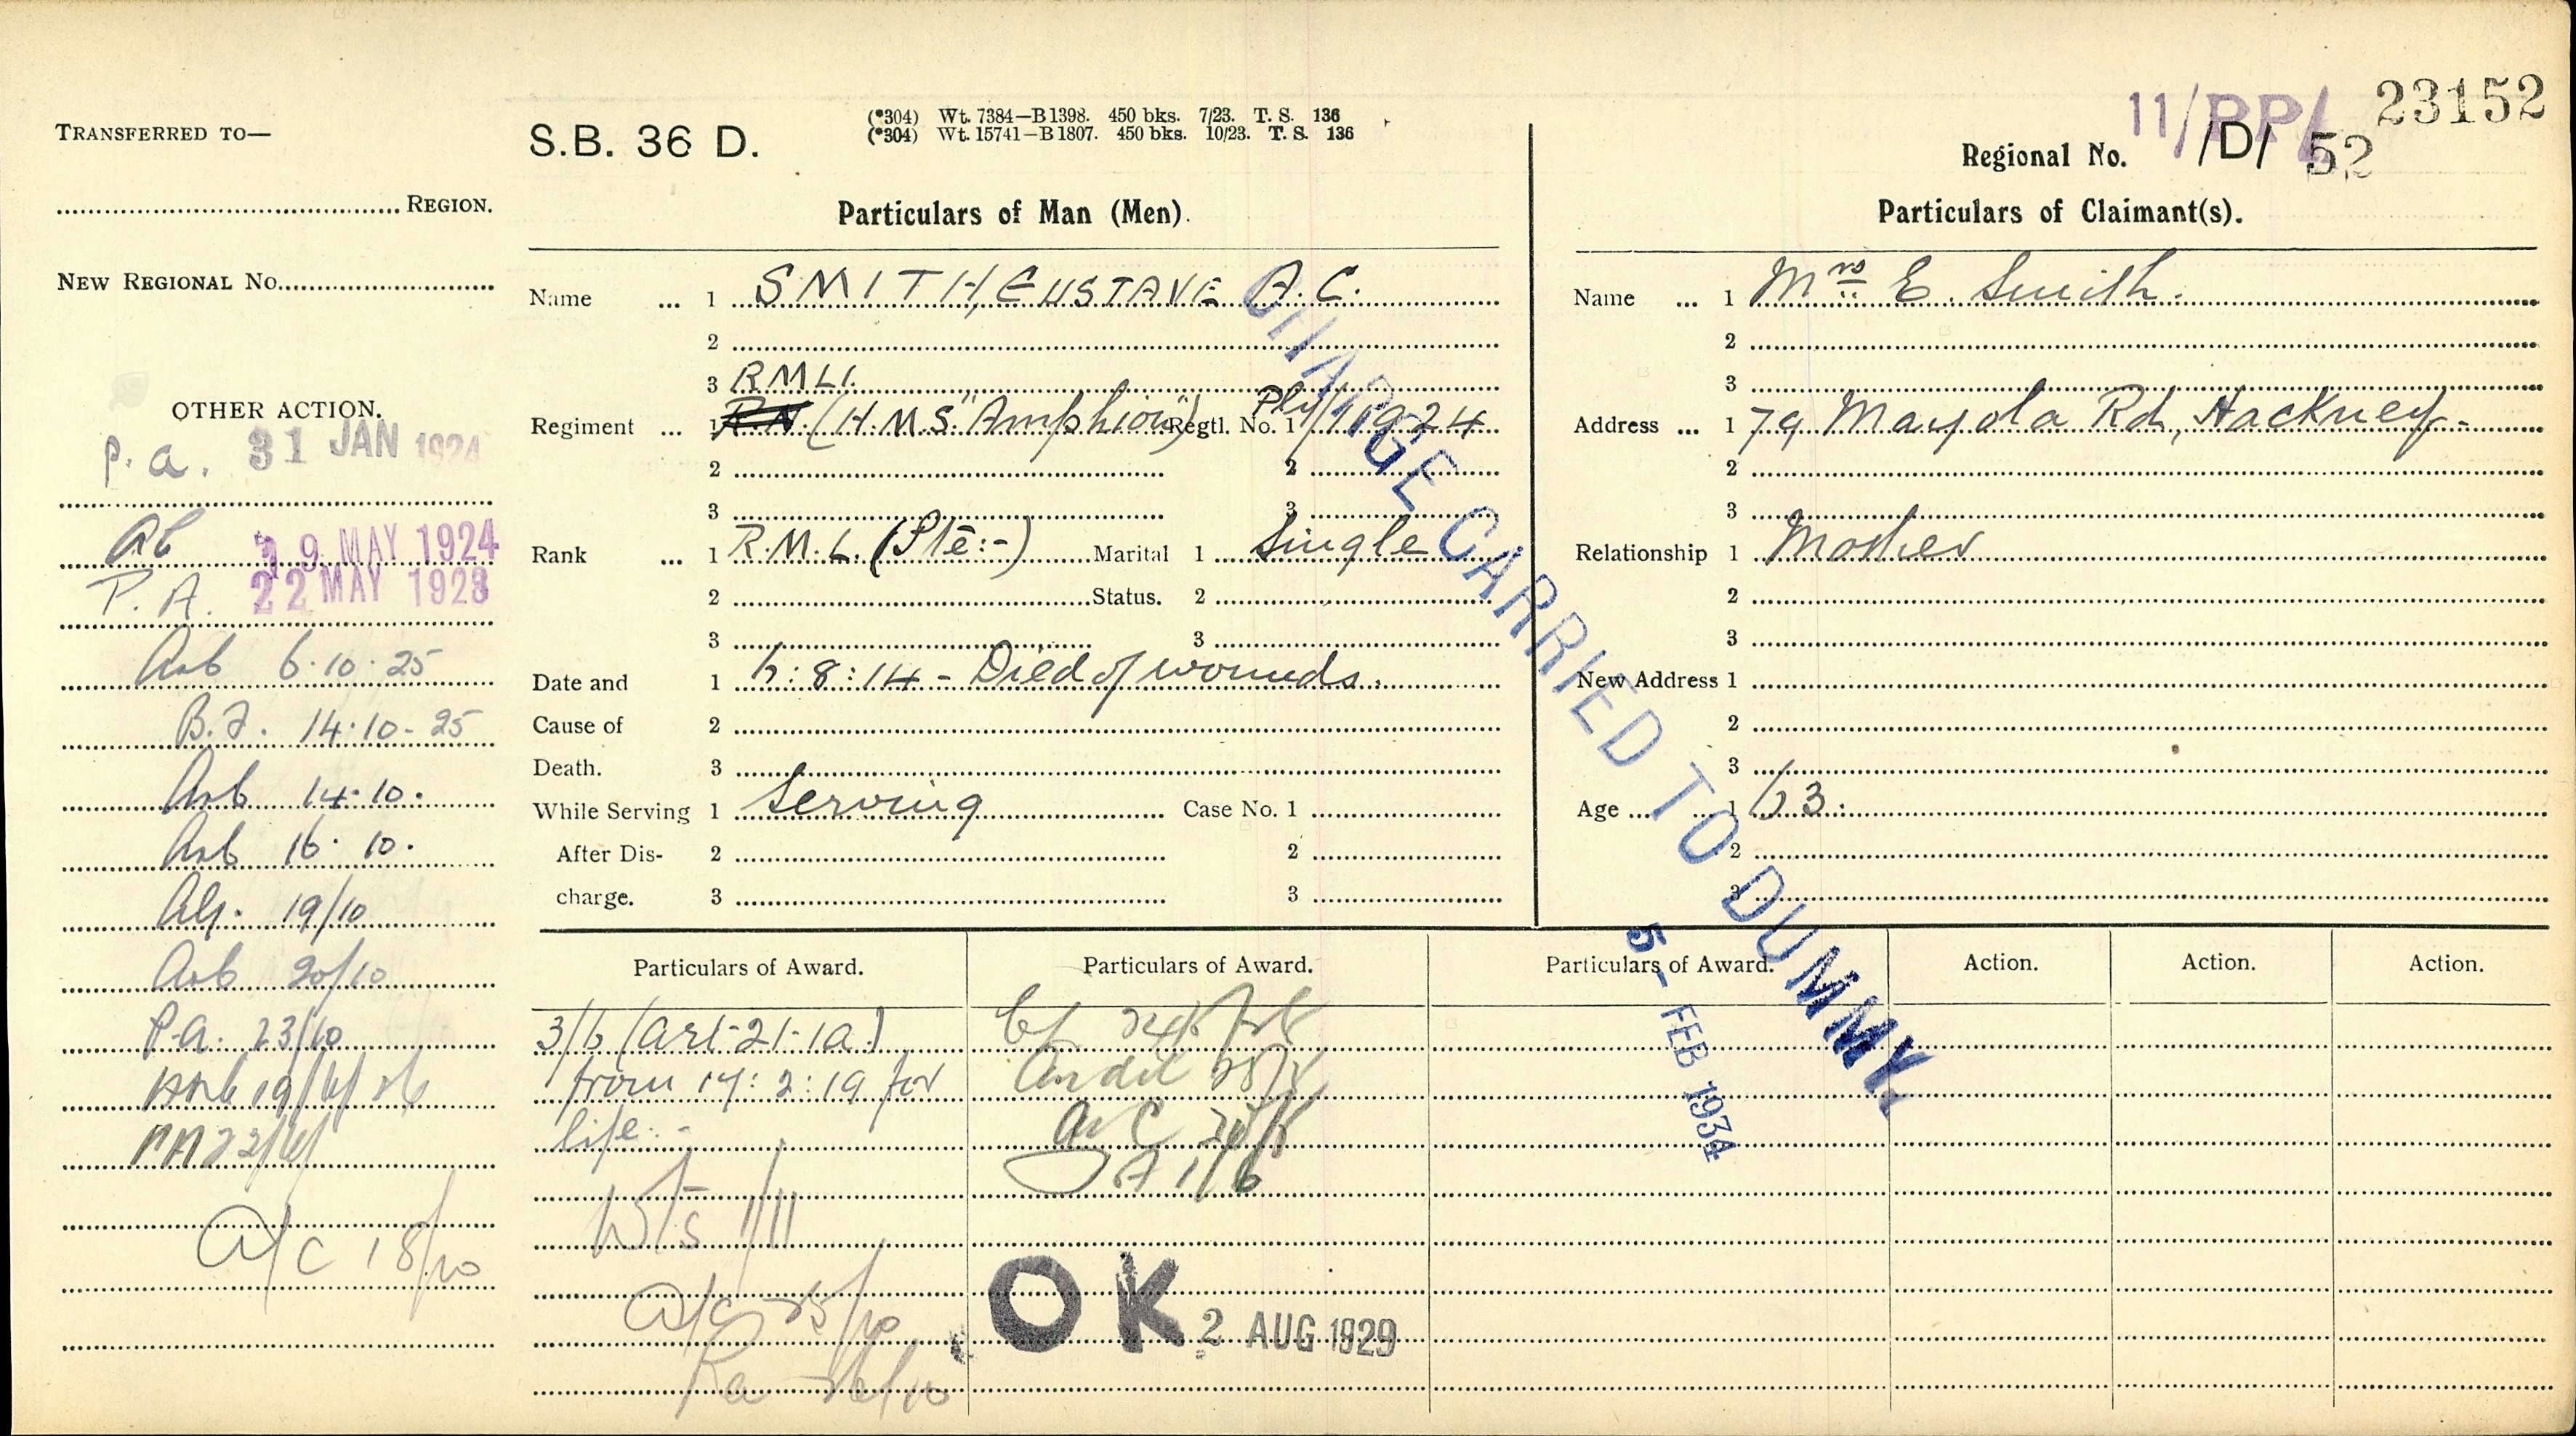 TRANSFERRED TO—
REGION.
NEW REGIONAL No.
OTHER ACTION.
P.a. 31 JAN 1924
19 MAY 1924
P.A. 22 MAY 1928
6.10.25
14.10.25
14.10.
16.10.
19/10
20/10
P.A. 23/10
A/C 18/10
S.B. 36 D.
(*304) Wt. 7384—B1398. 450 bks. 7/23. T. S. 136
(*304) Wt. 15741—B1807. 450 bks. 10/23. T. S. 136
Particulars of Man (Men).
Name ... 1 SMITH, GUSTAVE A.C.
2
3 RMLI.
Regiment ... 1 R.N. (H.M.S. "Amphion") Regtl. No. 1 Ply/
2 2
3 3
Rank ... 1 R.M.L. (Pte:-) Marital 1 Single
2 Status. 2
3 3
Date and 1 :8:14 - Died of wounds.
Cause of 2
Death. 3
While Serving 1 Serving Case No. 1
After Dis- 2 2
charge. 3 3
11/PP/ 23152
Regional No. /D/ 52
Particulars of Claimant(s).
Name ... 1 Mrs E. Smith.
2
3
Address ... 1 79 Mayola Rd, Hackney.
2
3
Relationship 1 Mother
2
3
New Address 1
2
3
Age ... 1
2
3
CHARGE CARRIED TO DUMMY.
5 - FEB 1934
Particulars of Award. Particulars of Award. Particulars of Award. Action. Action. Action.
(Art-21-1a)
from 17:2:19 for
life:-
A/C 25/10
OK 2 AUG 1929